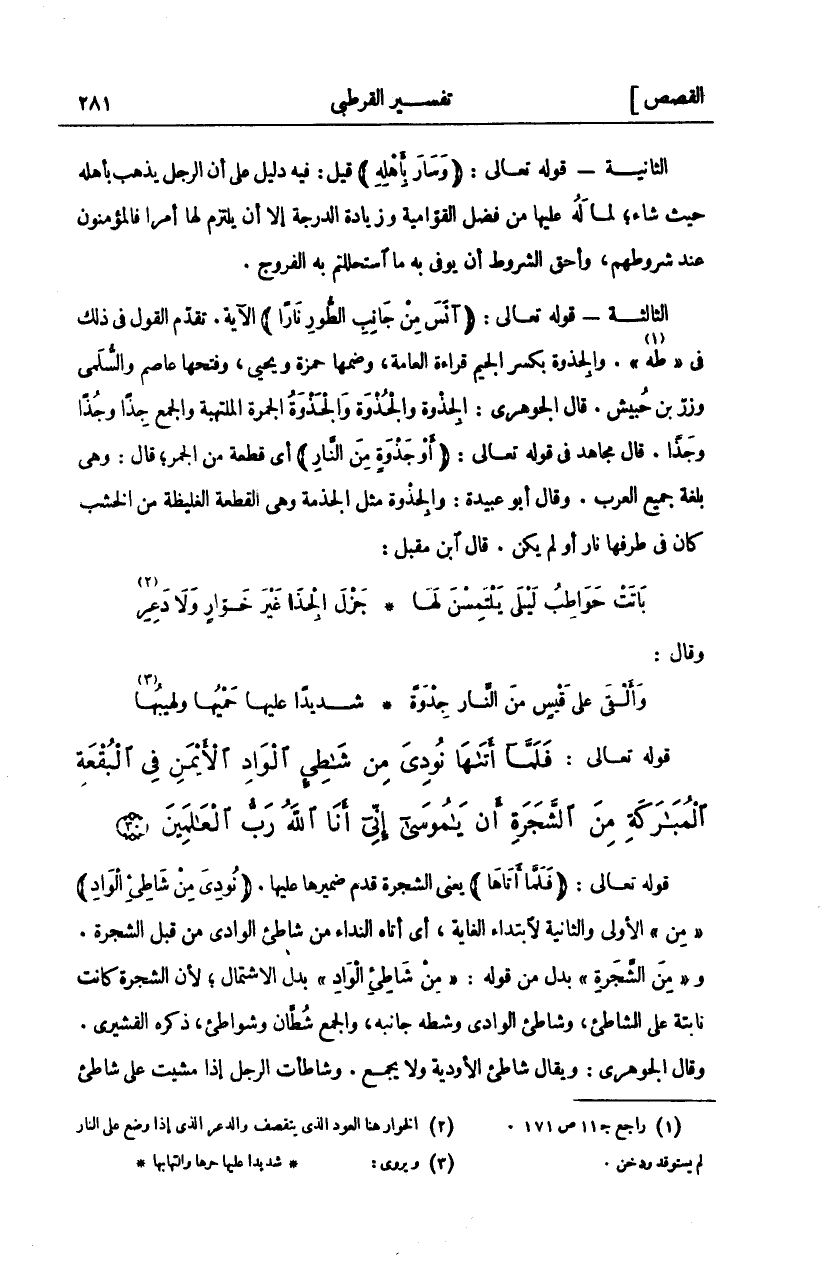 القصص ] تفسير القرطبى ٢٨١
الثانية — قوله تعالى : ﴿ وَسَارَ بِأَهْلِهِ ﴾ قيل : فيه دليل على أن الرجل يذهب بأهله
حيث شاء؛ لما لَهُ عليها من فضل القوّامية وزيادة الدرجة إلا أن يلتزم لها أمرا فالمؤمنون
عند شروطهم، وأحق الشروط أن يوفى به ما ٱستحللتم به الفروج .
الثالثة — قوله تعالى : ﴿ آنَسَ مِنْ جَانِبِ الطُّورِ نَارًا ﴾ الآية . تقدّم القول فى ذلك
فى « طه » (١) . والجِذوة بكسر الجيم قراءة العامة، وضمها حمزة ويحيى، وفتحها عاصم والسُّلَمى
وزرّ بن حُبيش . قال الجوهرى : الجِذْوة والجُذْوَة والجَذْوَةُ الجمرة الملتهبة والجمع جِذًا وجُذًا
وجَذًا . قال مجاهد فى قوله تعالى : ﴿ أَوْ جَذْوَةٍ مِنَ النَّارِ ﴾ أى قطعة من الجمر؛ قال : وهى
بلغة جميع العرب . وقال أبو عبيدة : والجِذوة مثل الجِذمة وهى القطعة الغليظة من الخشب
كان فى طرفها نار أو لم يكن . قال ٱبن مقبل :
بَاتَتْ حَوَاطِبُ لَيْلَى يَلْتَمِسْنَ لَهَا * جَزْلَ الجِذَا غَيْرَ خَوَّارٍ وَلَا دَعِرِ (٢)
وقال :
وَأَلْقَى على قَيْسٍ مِنَ النَّار جِذْوَةً * شديدًا عليها حَمْيُها ولهيبُها (٣)
قوله تعالى : فَلَمَّآ أَتَىٰهَا نُودِىَ مِن شَٰطِئِ ٱلْوَادِ ٱلْأَيْمَنِ فِى ٱلْبُقْعَةِ
ٱلْمُبَٰرَكَةِ مِنَ ٱلشَّجَرَةِ أَن يَٰمُوسَىٰٓ إِنِّىٓ أَنَا ٱللَّهُ رَبُّ ٱلْعَٰلَمِينَ ﴿٣٠﴾
قوله تعالى : ﴿ فَلَمَّا أَتَاهَا ﴾ يعنى الشجرة قدم ضميرها عليها . ﴿ نُودِىَ مِنْ شَاطِئِ الْوَادِ ﴾
« مِن » الأولى والثانية لٱبتداء الغاية ، أى أتاه النداء من شاطئ الوادى من قبل الشجرة .
و « مِنَ الشَّجَرَةِ » بدل من قوله : « مِنْ شَاطِئِ الْوَادِ » بدل الاشتمال ؛ لأن الشجرة كانت
نابتة على الشاطئ، وشاطئ الوادى وشطه جانبه، والجمع شُطَّان وشواطئ، ذكره القشيرى .
وقال الجوهرى : ويقال شاطئ الأودية ولا يجمع . وشاطأت الرجل إذا مشيت على شاطئ
(١) راجع جـ ١١ ص ١٧١ . (٢) الخوار هنا العود الذى يتقصف والدعر الذى إذا وضع على النار
لم يستوقد ودخن . (٣) ويروى : * شديدا عليها حرها والتهابها *